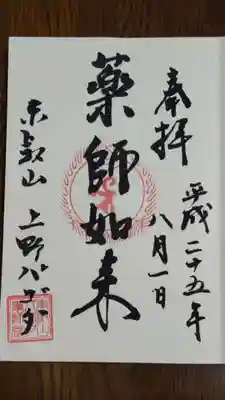 奉拝
平成二十五年
八月一日
薬師如来
東叡山 上野パゴダ